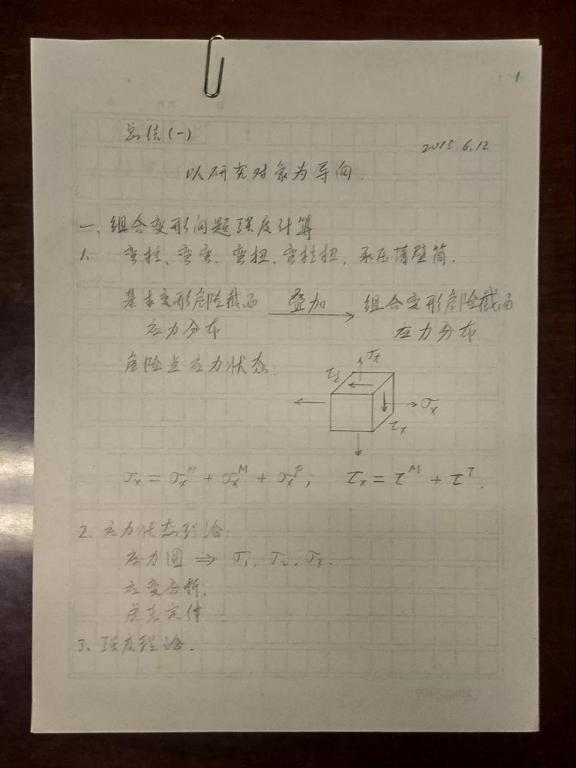 1
总结(一)
2015.6.12
以研究对象为导向.
一、组合变形问题强度计算
1. 弯拉、弯弯、弯扭、弯拉扭、承压薄壁筒.
基本变形危险截面 叠加 组合变形危险截面
应力分布 应力分布
危险点应力状态:
σx
τ
σx
τx
σx = σx^N + σx^M + σx^P, τx = τ^M + τ^T.
2. 应力状态理论:
应力圆 ⇒ σ1, σ2, σ3.
应变分析.
虎克定律
3. 强度理论.